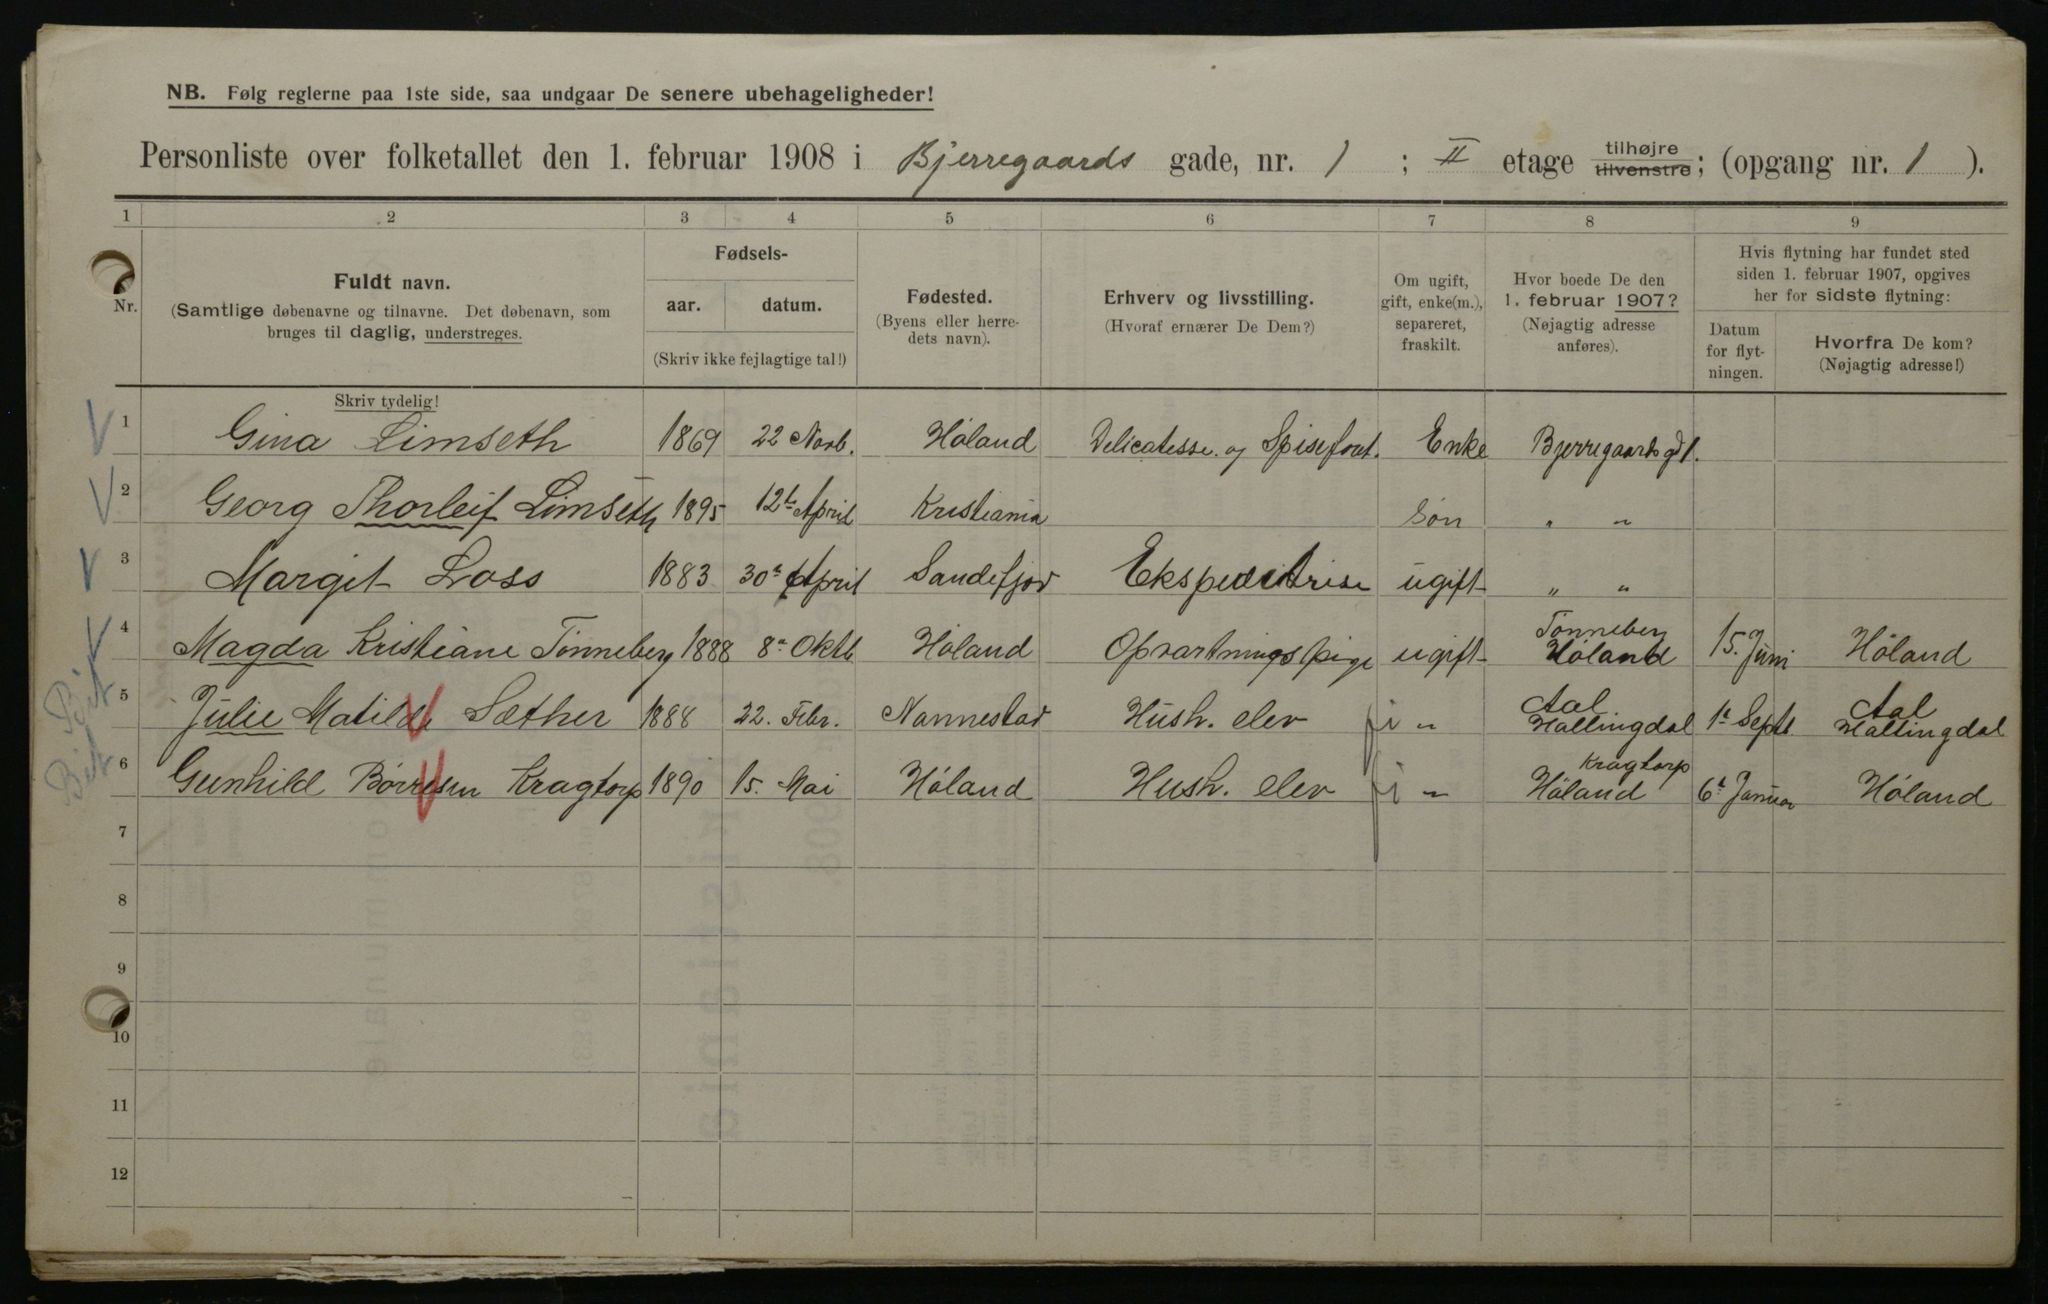 NB. Følg reglerne paa 1ste side, saa undgaar De senere ubehageligheder!
Personliste over folketallet den 1. februar 1908 i Bjerregaards gade, nr. 1 ; II etage tilhøjre tilvenstre; (opgang nr. 1 ).
1 2 3 4 5 6 7 8 9
Nr. Fuldt navn. (Samtlige døbenavne og tilnavne. Det døbenavn, som bruges til daglig, understreges.
Fødsels- aar. datum. (Skriv ikke fejlagtige tal!)
Fødested. (Byens eller herredets navn).
Erhverv og livsstilling. (Hvoraf ernærer De Dem?)
Om ugift, gift, enke(m.), separeret, fraskilt.
Hvor boede De den 1. februar 1907? (Nøjagtig adresse anføres).
Hvis flytning har fundet sted siden 1. februar 1907, opgives her for sidste flytning:
Datum for flytningen. Hvorfra De kom? (Nøjagtig adresse!)
Skriv tydelig!
1 Gina Limseth 1869 22 Novb. Høland Delicatesse. og Spisefort. Enke Bjerregaardsgd 1.
2 Georg Thorleif Limseth 1895 12te April Kristiania Søn " "
3 Margit Loss 1883 30te April Sandefjor Ekspeditrise ugift " "
4 Magda Kristiane Tønneberg 1888 8de Oktb Høland Opvartningspige ugift Tønneberg Høland 15. Juni Høland
5 Julie Matilde Sæther 1888 22. Febr. Nannestad Hush. elev " Aal Hallingdal 1te Septb. Aal Hallingdal
6 Gunhild Børresen Kragtorp 1890 15. Mai Høland Hush. elev " Kragtorp Høland 6te Januar Høland
7
8
9
10
11
12